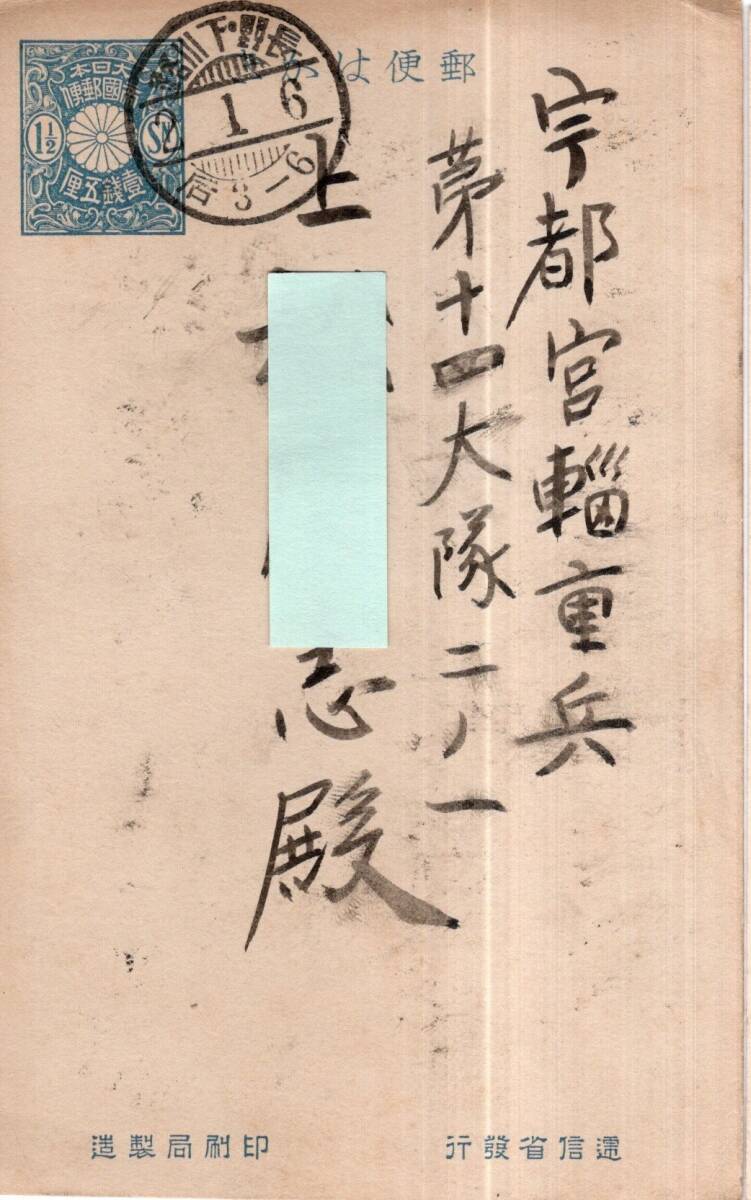 郵便はがき
大日本
帝國郵便
1½ Sn
壹錢五厘
長野・下川路
2 1 6
后 3-6
宇都宮輜重兵
第十四大隊二ノ一
上
志殿
逓信省發行
印刷局製造